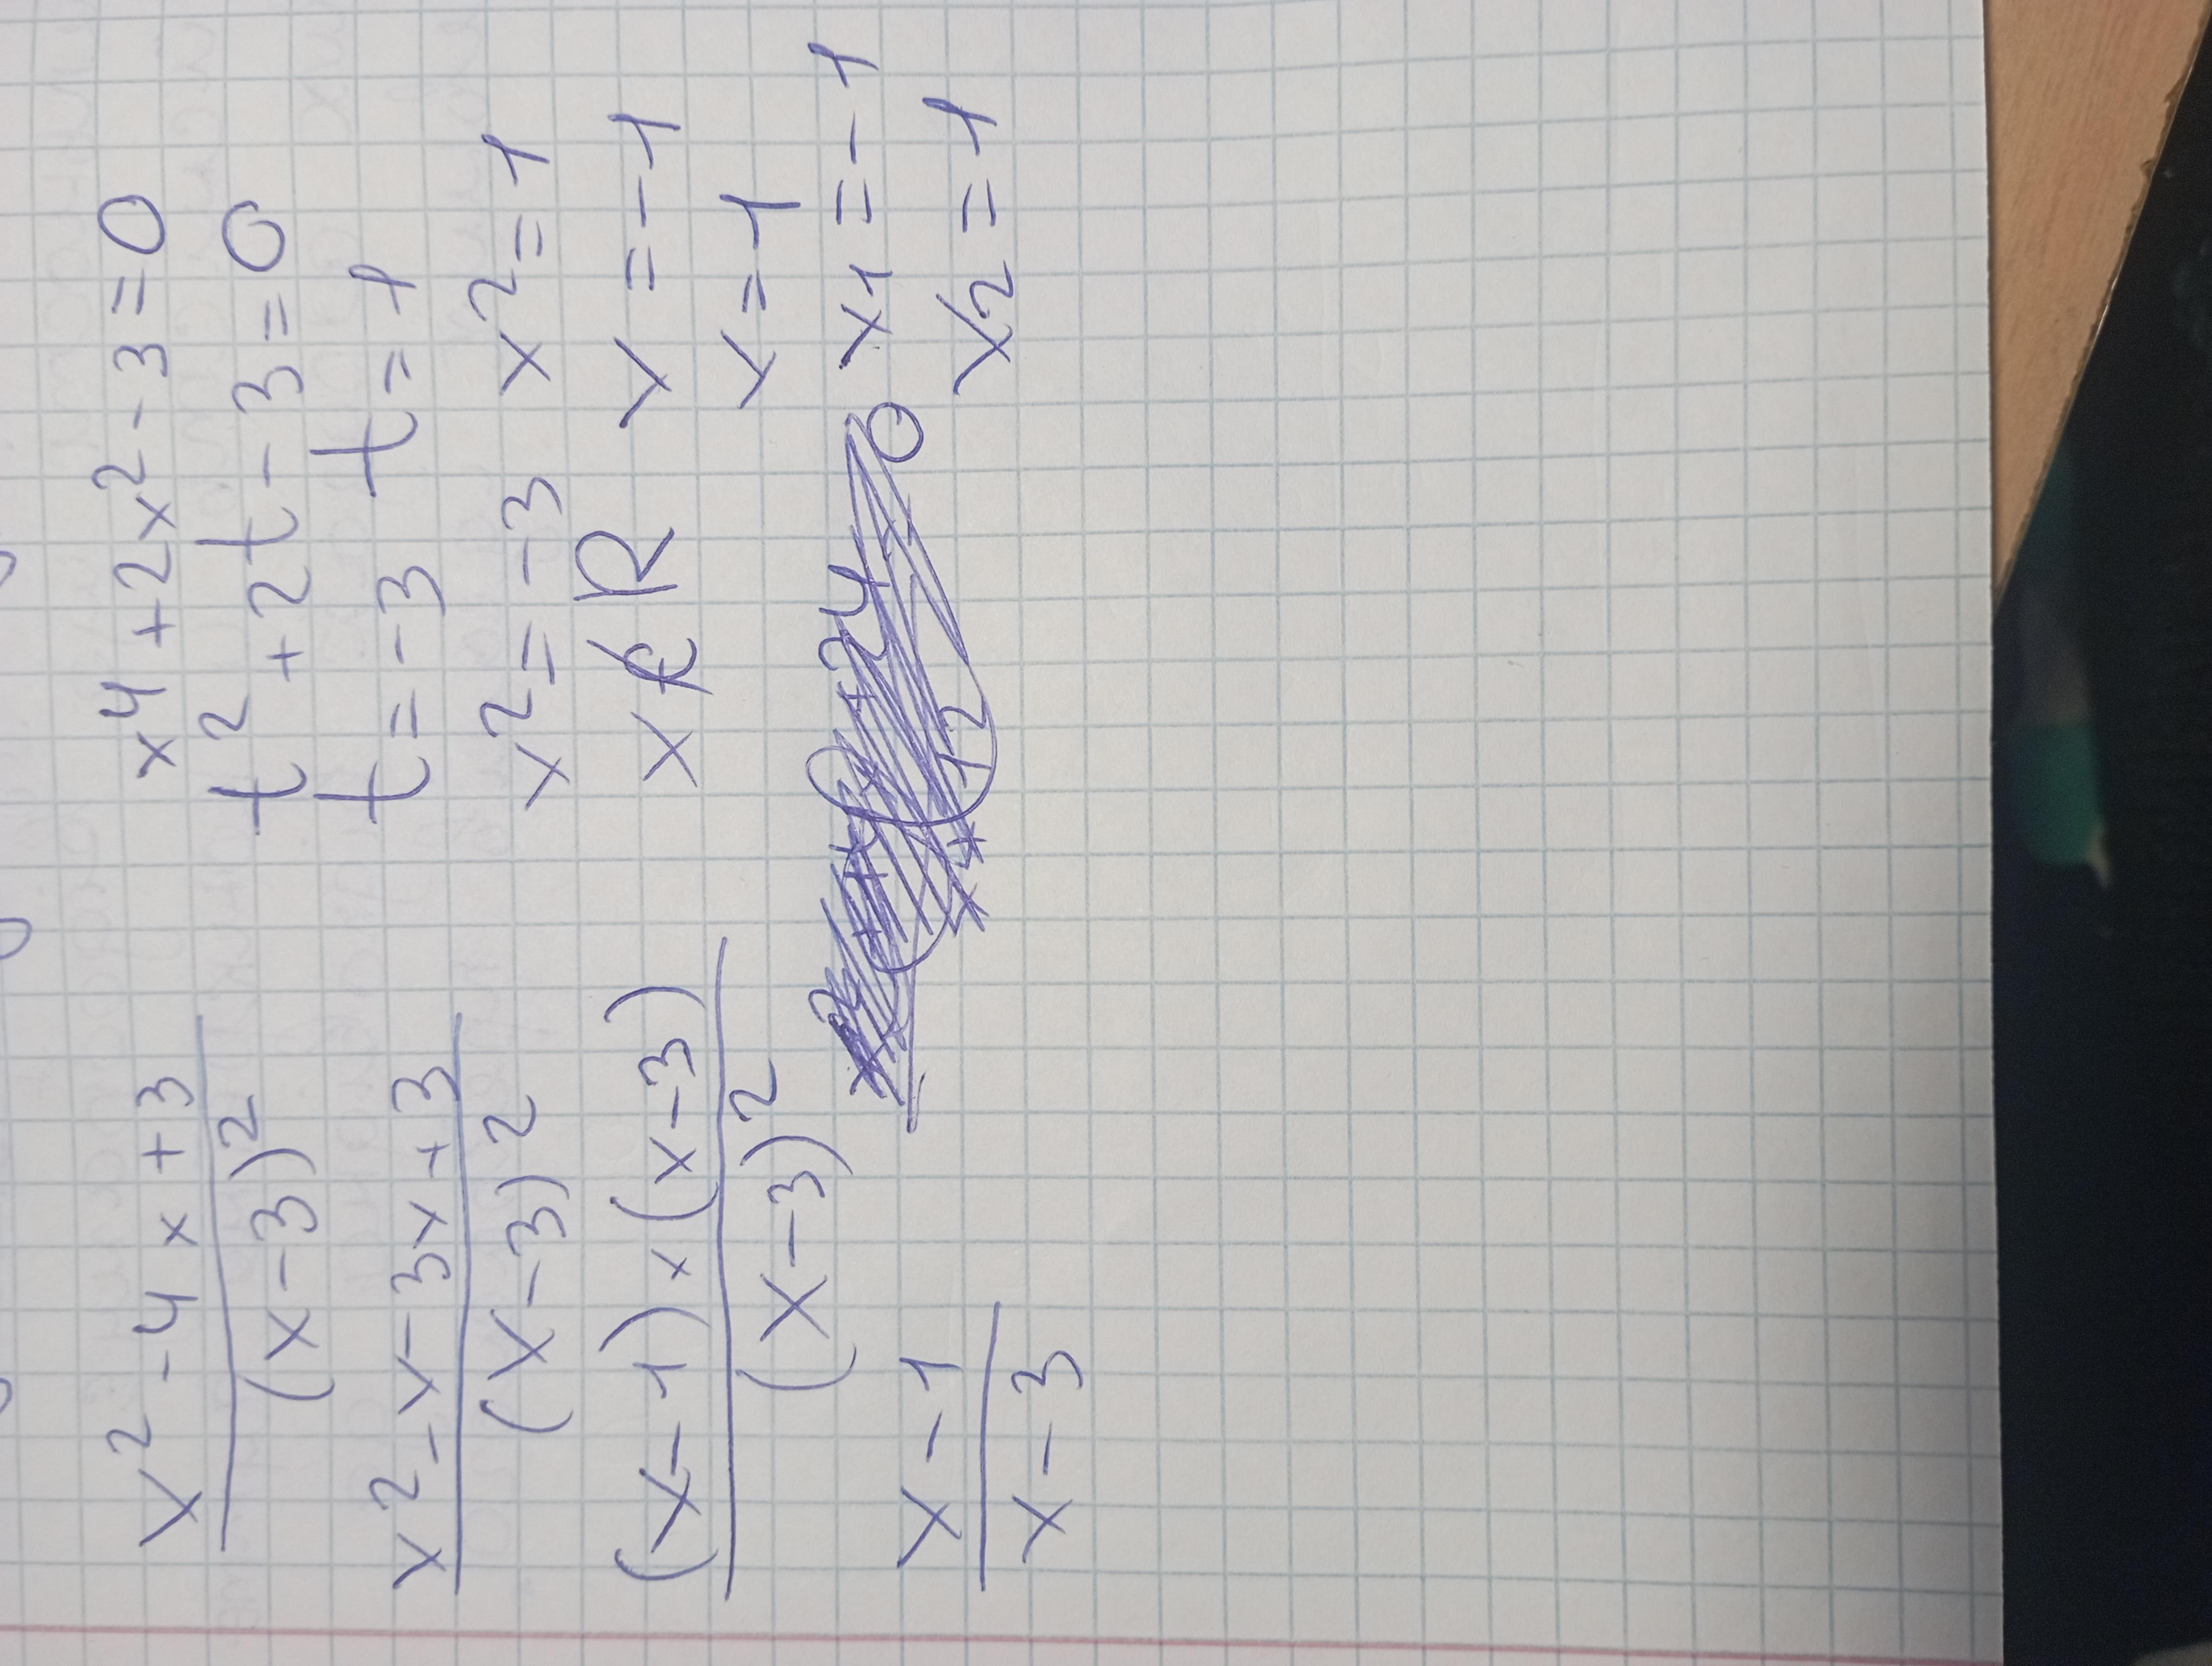 x² - 4x + 3
(x - 3)²
x² - x - 3x + 3
(x - 3)²
(x - 1) × (x - 3)
(x - 3)²
x - 1
x - 3
x⁴ + 2x² - 3 = 0
t² + 2t - 3 = 0
t = -3 t = 1
x² = -3 x² = 1
x ∉ R x = -1
x = 1
x1 = -1
x2 = 1